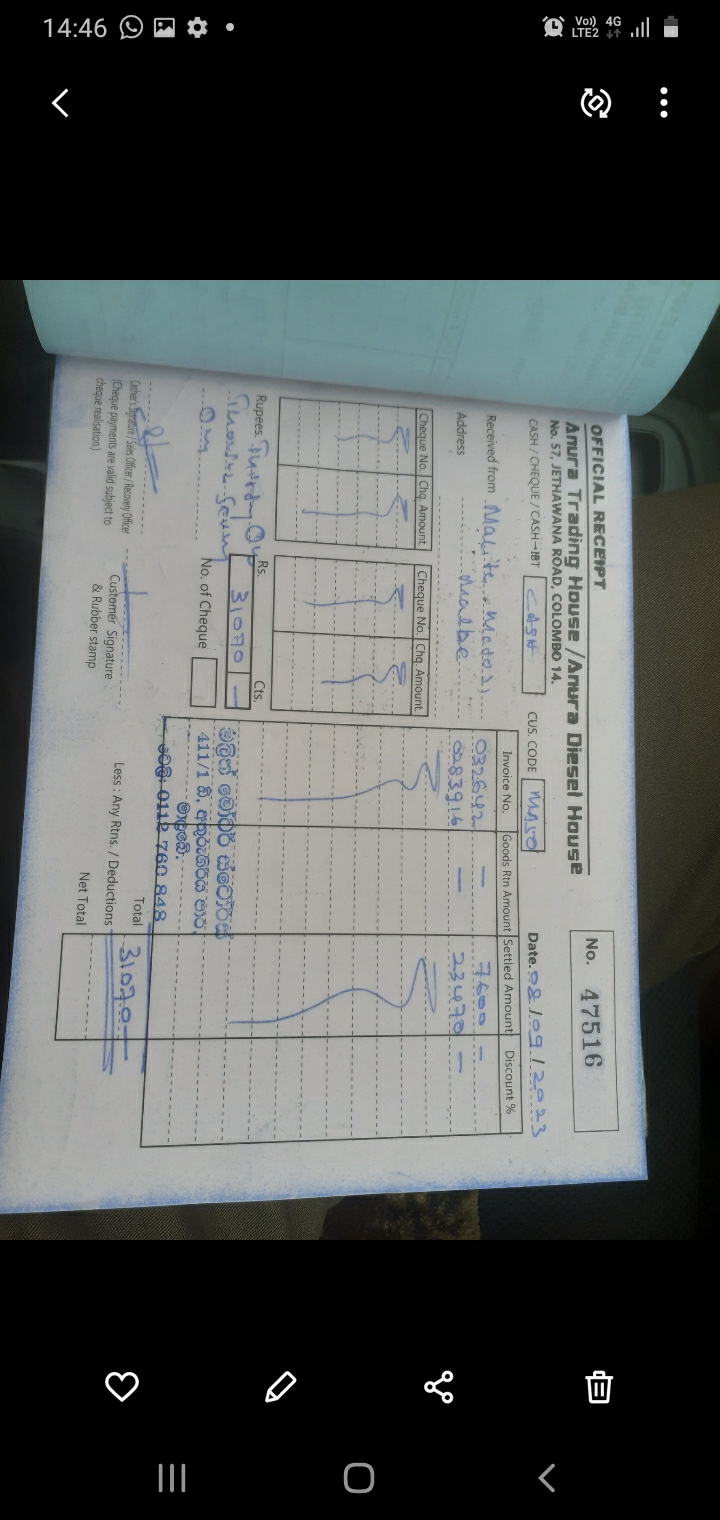 14:46
Vo)) LTE2 4G
OFFICIAL RECEIPT
No. 47516
Anura Trading House /Anura Diesel House
No. 57, JETHAWANA ROAD, COLOMBO 14.
CASH / CHEQUE / CASH-IBT CASH
CUS. CODE MA50
Date. 08/09/2023
Received from
Address Malbe
Cheque No. Chq. Amount
Cheque No. Chq. Amount
Invoice No. Goods Rtn Amount Settled Amount Discount %
032642 — 7600 —
0283916 — 23470 —
Rupees.
Rs. 31070 — Cts.
No. of Cheque
මලිත් මෝටර් ස්ටෝර්ස්
411/1 බී,
මාලබේ.
ටෙලි: 0112 760 848
Total 31070 —
Less : Any Rtns. / Deductions
Net Total
Cashier's Signature / Sales Officer / Recovery Officer
(Cheque payments are valid subject to
cheque realisation.)
Customer Signature
& Rubber stamp